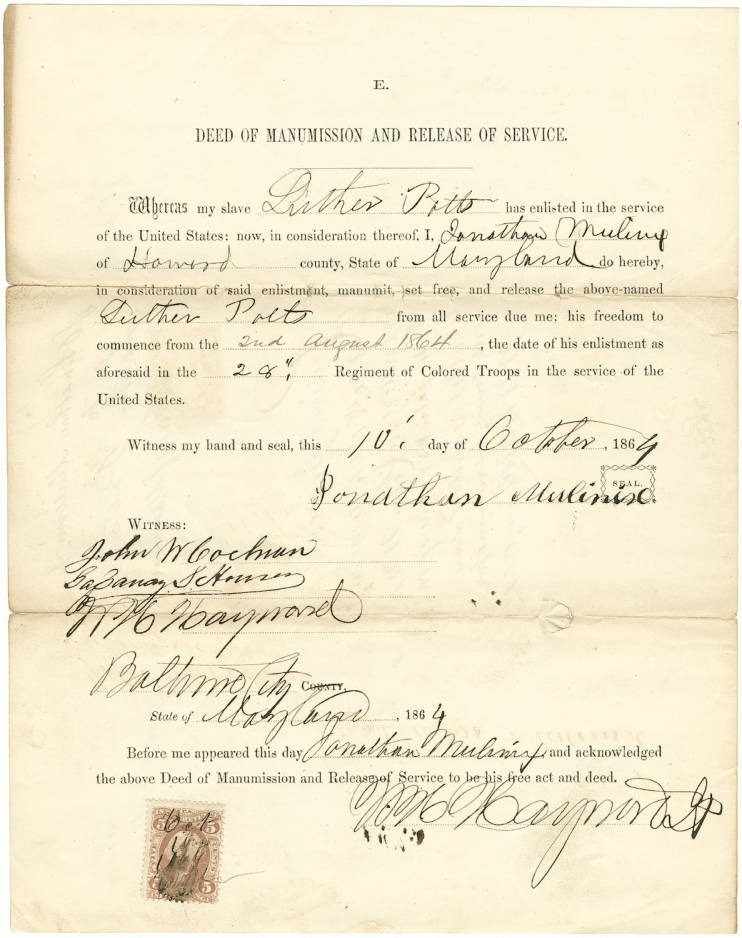 E.
DEED OF MANUMISSION AND RELEASE OF SERVICE.
Whereas my slave Luther Potts has enlisted in the service
of the United States: now, in consideration thereof, I, Jonathan Mulinix
of Howard county, State of Maryland do hereby,
in consideration of said enlistment, manumit, set free, and release the above-named
Luther Potts from all service due me; his freedom to
commence from the 2nd August 1864, the date of his enlistment as
aforesaid in the 28", Regiment of Colored Troops in the service of the
United States.
Witness my hand and seal, this 10' day of October, 1864
SEAL.
Jonathan Mulinix
WITNESS:
John W Cochran
W H Hayward
Baltimore City COUNTY,
State of Maryland, 1864
Before me appeared this day Jonathan Mulinix and acknowledged
the above Deed of Manumission and Release of Service to be his free act and deed.
W. H. Hayward
5 5
Oct
5 5